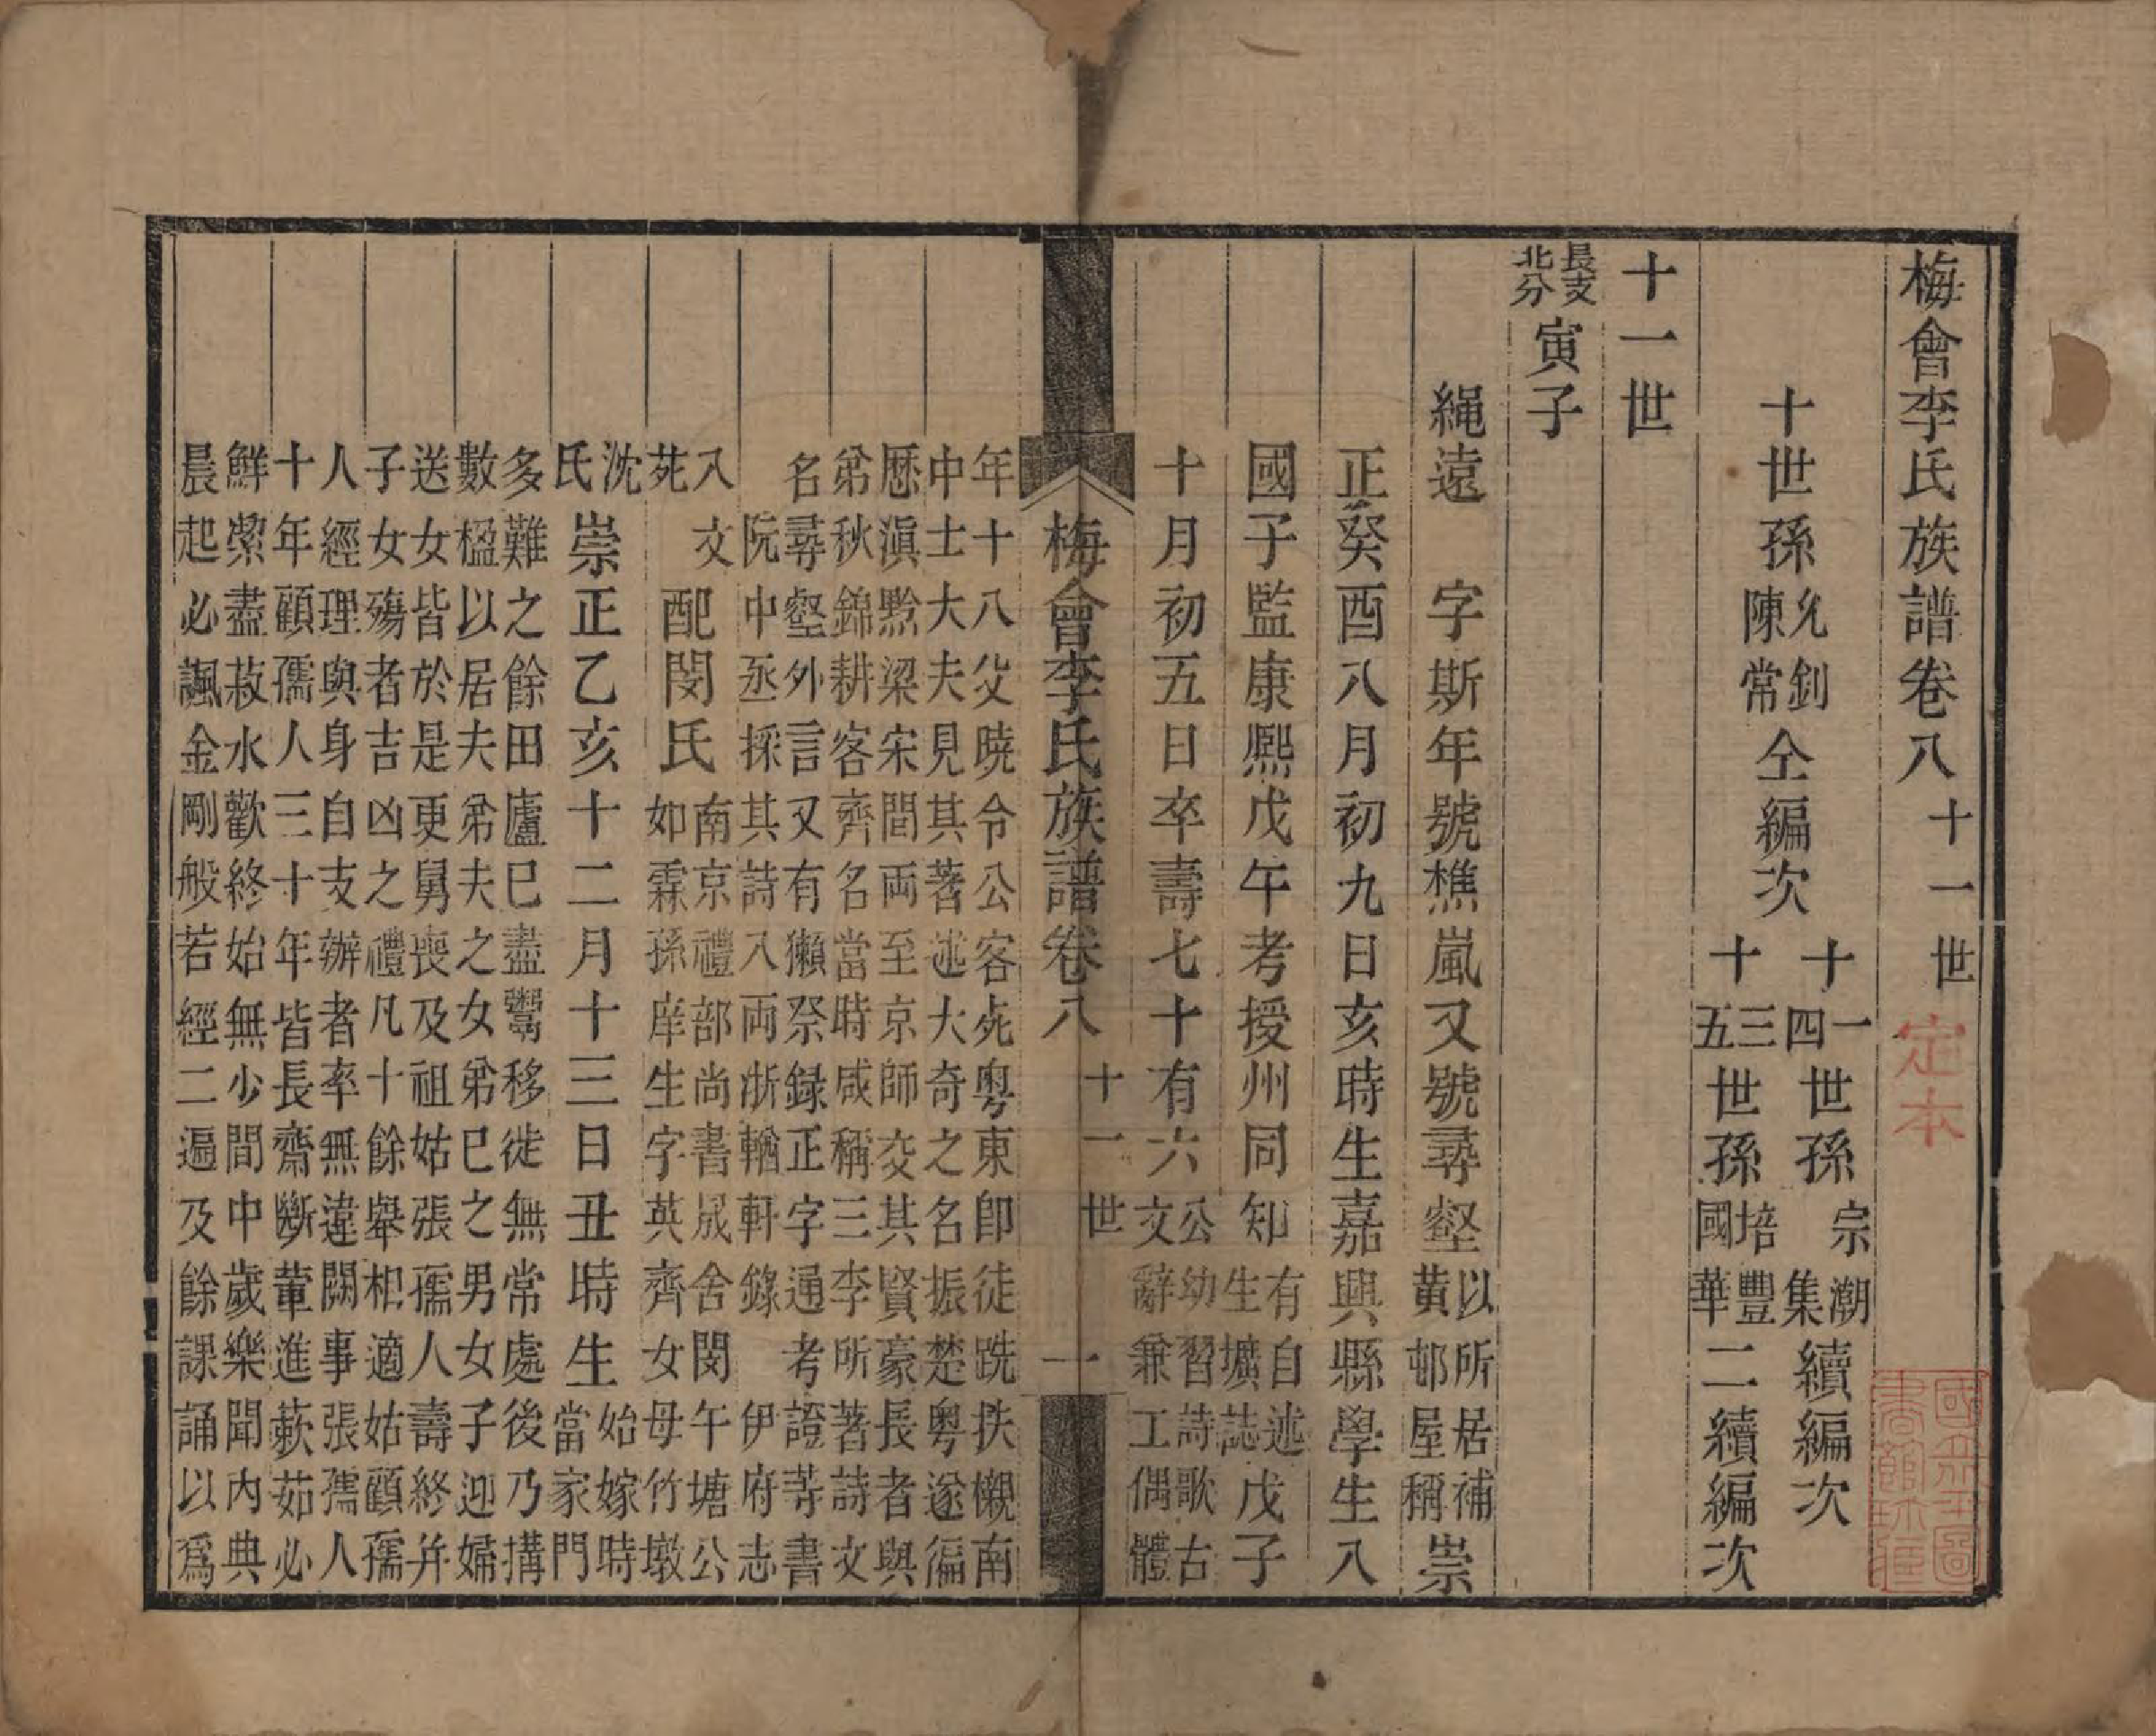 梅會李氏族譜卷八 十一世
定本
十世孫允釗陳常仝編次 十一世孫宗潮續編次
十四世孫集
十三世孫培豐二續編次
十五世孫國華
十一世
長支北分 寅子
繩遠 字斯年號樵嵐又號尋壑以所居補黃邨屋稱崇
正癸酉八月初九日亥時生嘉興縣學生入
國子監康熙戊午考授州同知有自述生壙誌戊子
十月初五日卒壽七十有六公幼習詩歌古
文辭兼工偶體
梅會李氏族譜卷八 十一世 一
年十八父曉令公客死粵東即徒跣扶櫬南
中士大夫見其著述大奇之名振楚粵遂徧
歷滇黔梁宋間兩至京師交其賢豪長者與
弟秋錦耕客齊名當時咸稱三李所著詩文
名尋壑外言又有獺祭録正字通考證等書
阮中丞採其詩入兩浙輶軒錄 伊府志
入文
苑 配閔氏南京禮部尚書晟舍閔午塘公
如霖孫庠生字英齊女母竹墩
沈
氏 崇正乙亥十二月十三日丑時生始嫁時
當家門
多難之餘田廬已盡鬻移徙無常處後乃搆
數楹以居夫弟夫之女弟已之男女子迎婦
送女皆於是更舅喪及祖姑張孺人壽終幷
子女殤者吉凶之禮凡十餘舉相適姑顧孺
人經理與身自支辦者率無違闕事張孺人
十年顧孺人三十年皆長齋斷葷進蔌茹必
鮮潔盡菽水歡終始無少間中歲樂聞內典
晨起必諷金剛般若經二遍及餘課誦以爲